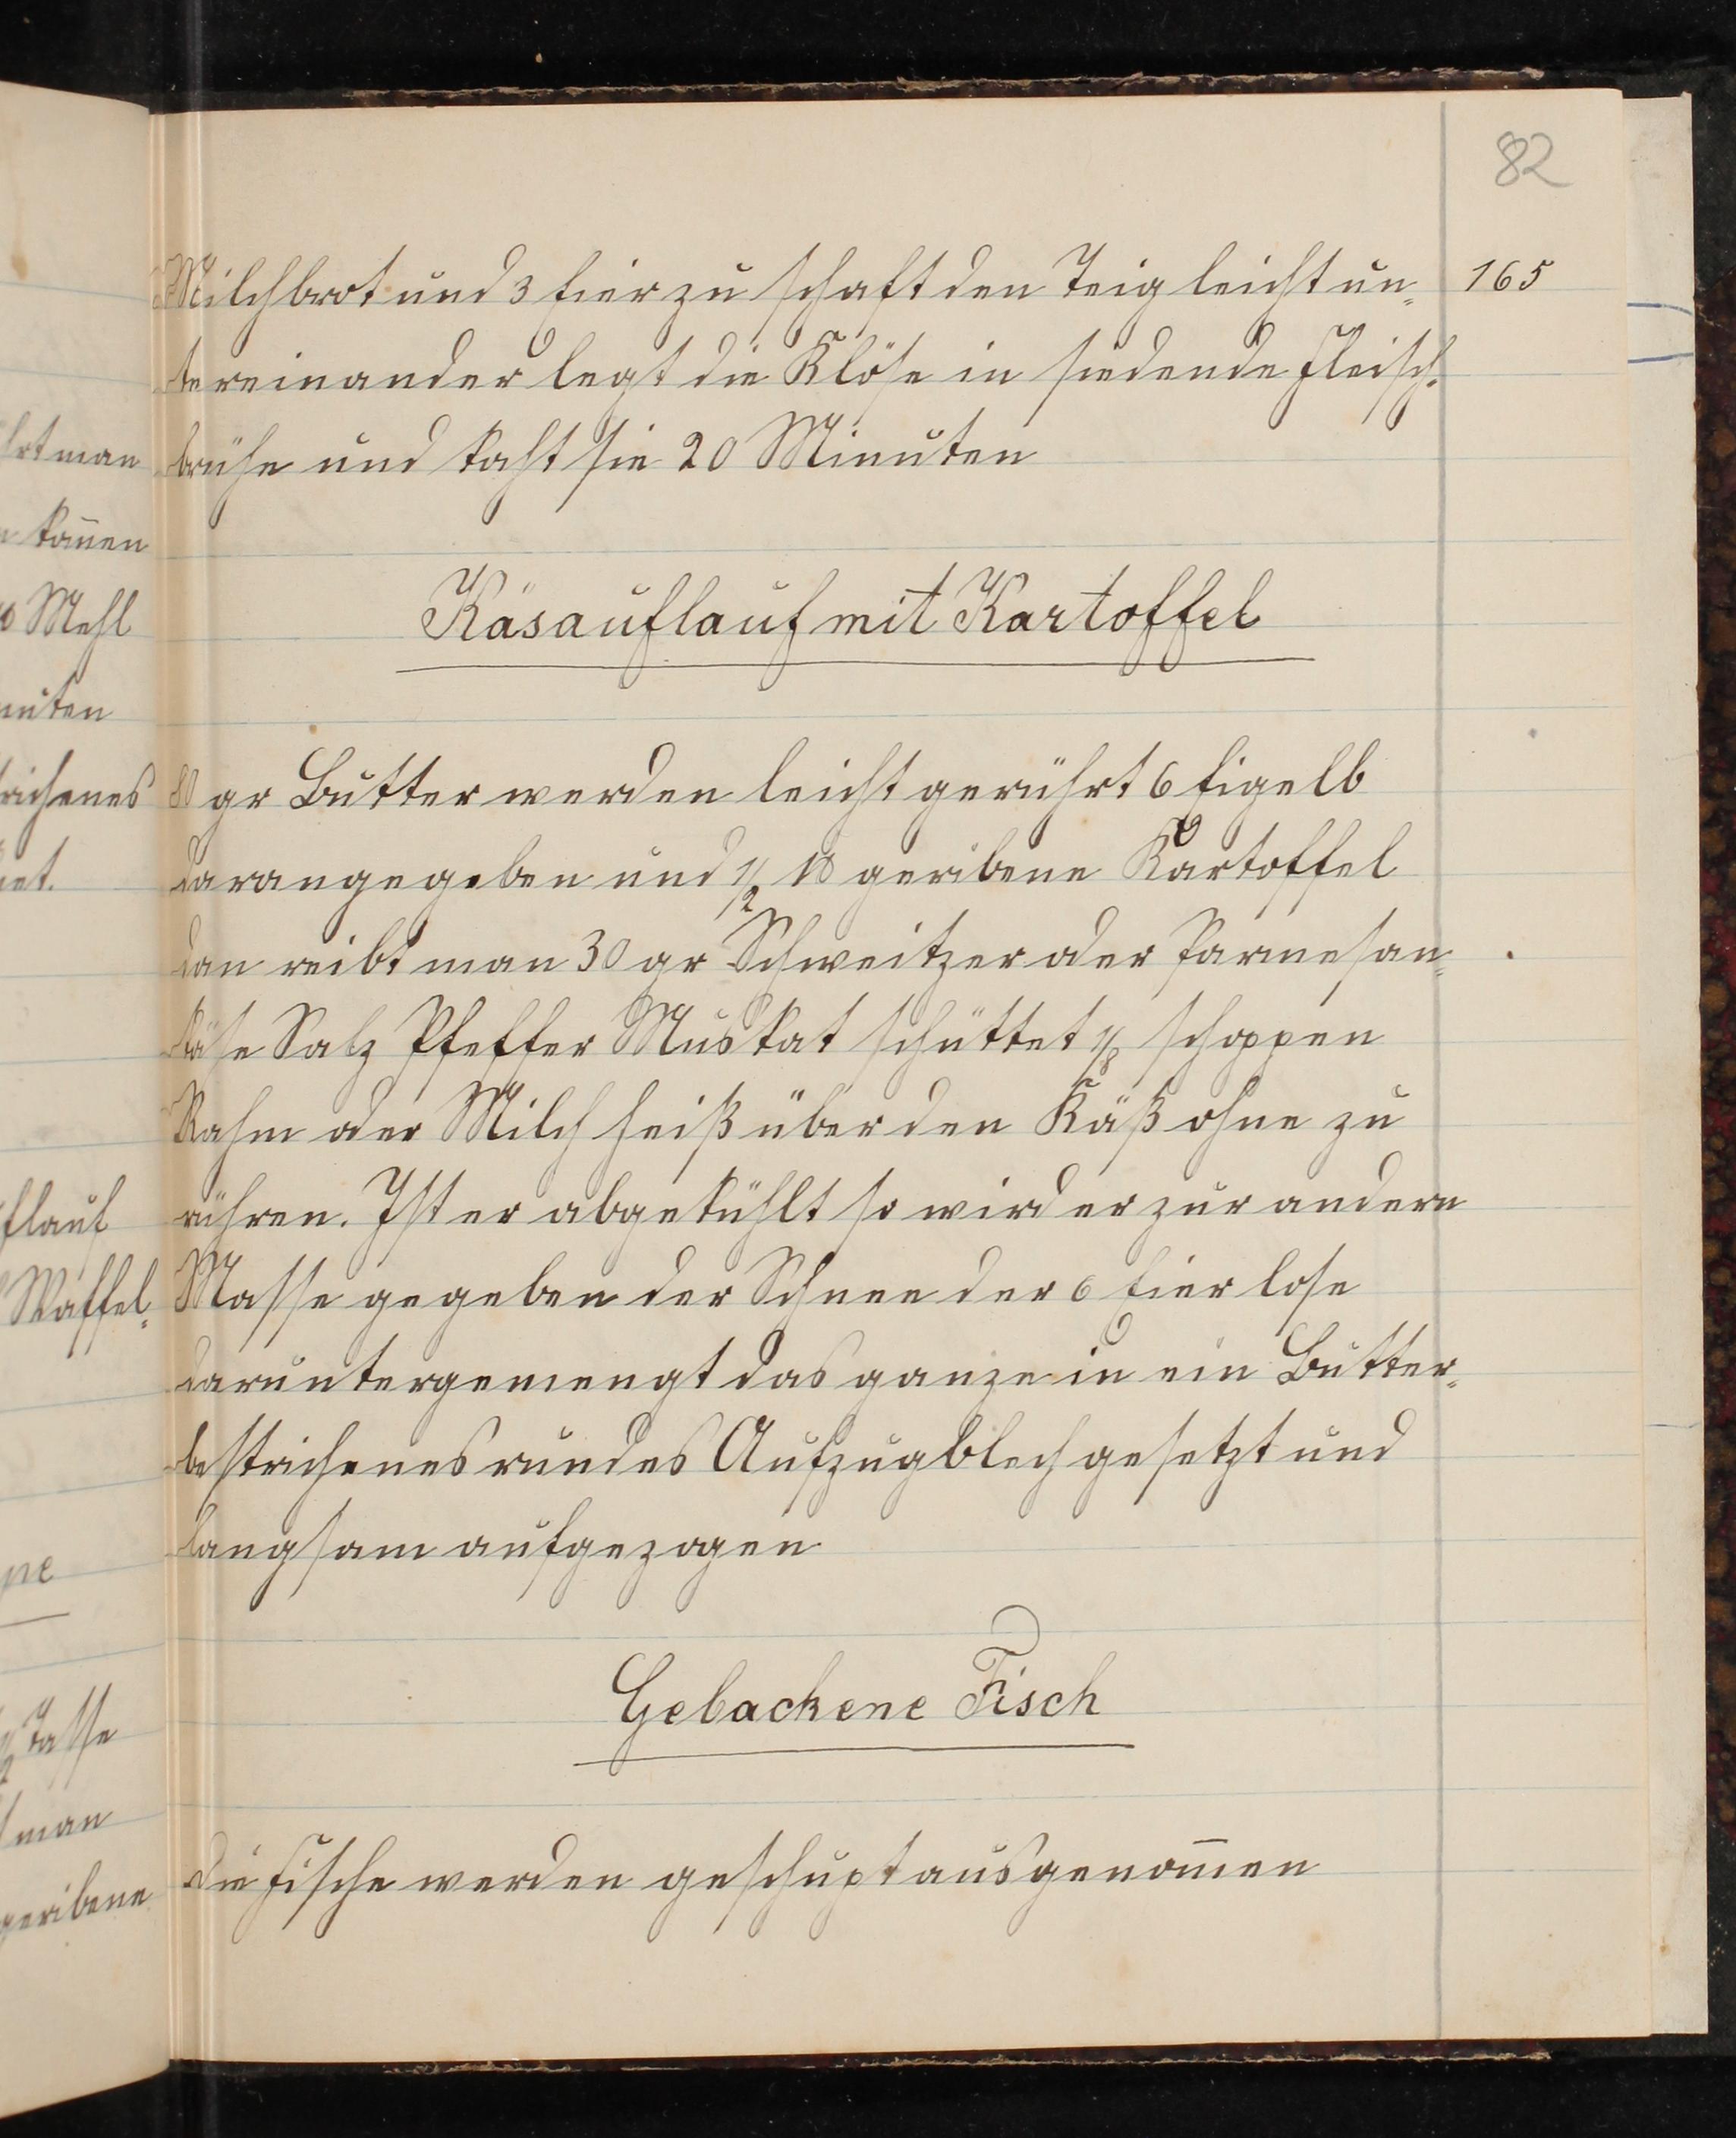 82
165
Milchbrot und 3 Eier zu schaft den Teig leicht un-
tereinander legt die Klöse in siedende Fleisch-
brühe und kocht sie 20 Minuten
Käsauflauf mit Kartoffel
80 gr Butter werden leicht gerührt 6 Eigelb
darangegeben und 1/2 ℔ geribene Kartoffel
dan reibt man 30 gr Schweitzer oder Parmesan-
käse Salz Pfeffer Muskat schüttet 1/8 schoppen
Rahm oder Milch heiß über den Käß ohne zu
rühren. Ist er abgekühlt so wird er zur andern
Masse gegeben der Schnee der 6 Eier lose
daruntergemengt das ganze in ein Butter-
bestrichenes rundes Aufzugblech gesetzt und
langsam aufgezogen
Gebackene Fisch
Die Fische werden geschupt ausgenom̅en